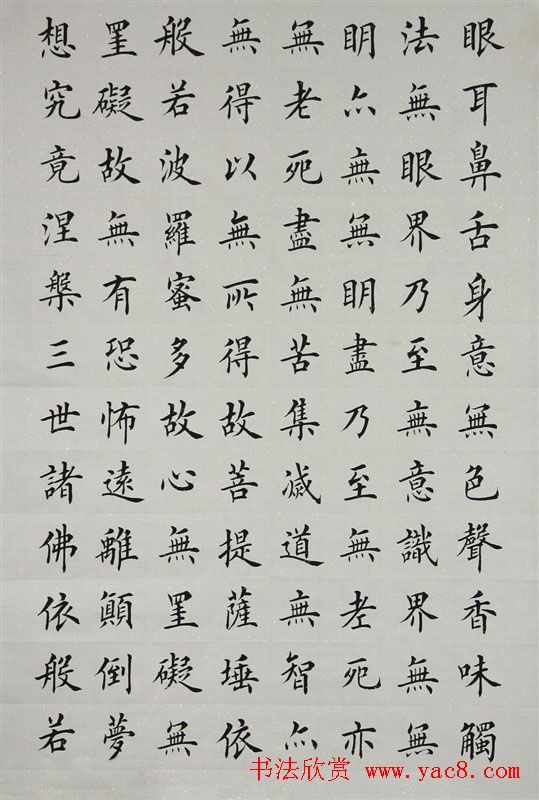 眼耳鼻舌身意無色聲香味觸
法無眼界乃至無意識界無無
明亦無無明盡乃至無老死亦
無老死盡無苦集滅道無智亦
無得以無所得故菩提薩埵依
般若波羅蜜多故心無罣礙無
罣礙故無有恐怖遠離顛倒夢
想究竟涅槃三世諸佛依般若
书法欣赏 www.yac8.com